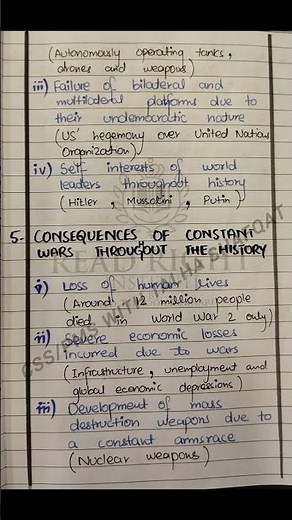 (Autonomously operating tanks,
drones and weapons)
iii) Failure of bilateral and
multilateral platforms due to
their undemocratic nature
(US' hegemony over United Nations
Organization)
iv) Self interests of world
leaders throughout history
(Hitler, Mussolini, Putin)
5- CONSEQUENCES OF CONSTANT
WARS THROUGHOUT THE HISTORY
i) Loss of human lives
(Around 12 million people
died in world war 2 only)
ii) Severe economic losses
incurred due to wars
(Infrastructure, unemployment and
global economic depressions)
iii) Development of mass
destruction weapons due to
a constant armsrace
(Nuclear weapons)